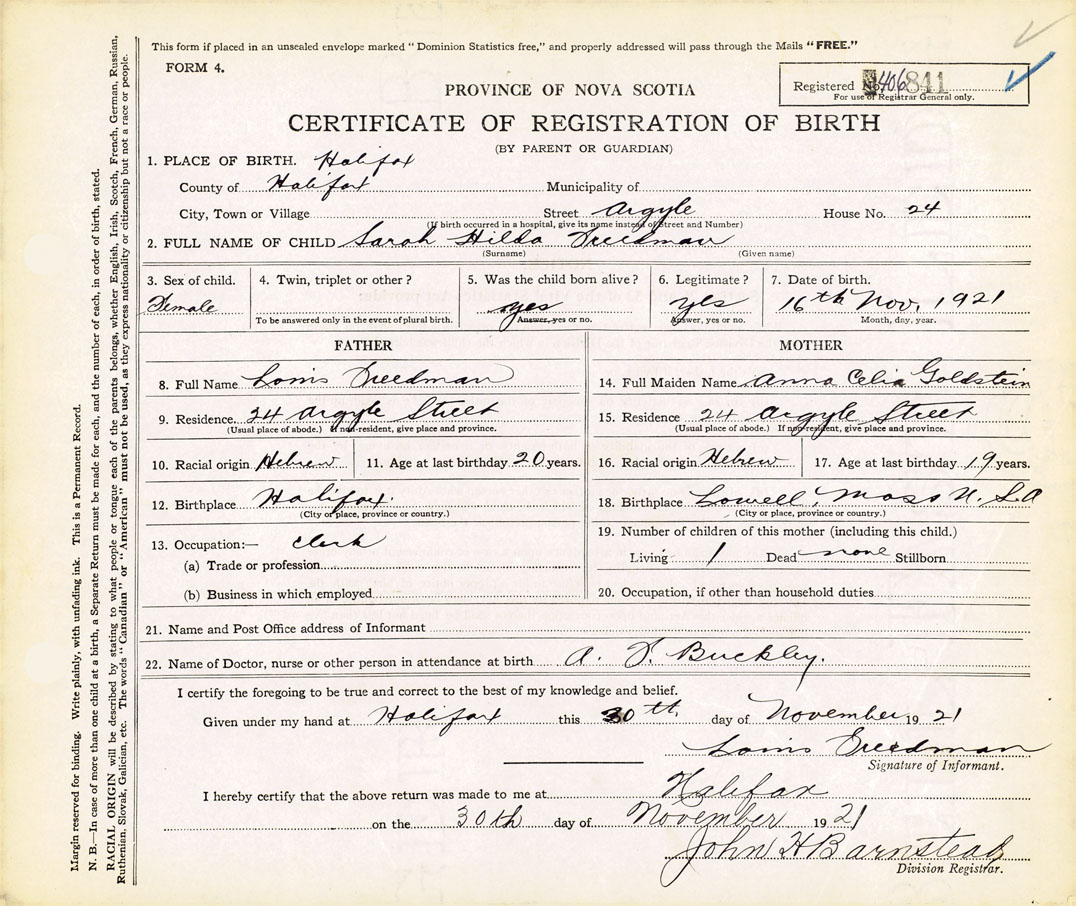 This form if placed in an unsealed envelope marked "Dominion Statistics free," and properly addressed will pass through the Mails "FREE."
FORM 4.
Registered No. 406841
For use of Registrar General only.
PROVINCE OF NOVA SCOTIA
CERTIFICATE OF REGISTRATION OF BIRTH
(BY PARENT OR GUARDIAN)
1. PLACE OF BIRTH. Halifax
County of Halifax Municipality of
City, Town or Village Street Argyle House No. 24
(If birth occurred in a hospital, give its name instead of Street and Number)
2. FULL NAME OF CHILD Sarah Hilda Freedman
(Surname) (Given name)
3. Sex of child. 4. Twin, triplet or other? 5. Was the child born alive? 6. Legitimate? 7. Date of birth.
Female yes yes 16th Nov. 1921
To be answered only in the event of plural birth. Answer, yes or no. Answer, yes or no. Month, day, year.
FATHER MOTHER
8. Full Name Louis Freedman 14. Full Maiden Name Anna Celia Goldstein
9. Residence 24 Argyle Street 15. Residence 24 Argyle Street
(Usual place of abode.) If non-resident, give place and province. (Usual place of abode.) If non-resident, give place and province.
10. Racial origin Hebrew 11. Age at last birthday 20 years. 16. Racial origin Hebrew 17. Age at last birthday 19 years.
12. Birthplace Halifax. 18. Birthplace Lowell, Mass U.S.A
(City or place, province or country.) (City or place, province or country.)
13. Occupation:— Clerk 19. Number of children of this mother (including this child.)
(a) Trade or profession Living 1 Dead none Stillborn
(b) Business in which employed 20. Occupation, if other than household duties
21. Name and Post Office address of Informant
22. Name of Doctor, nurse or other person in attendance at birth A. F. Buckley.
I certify the foregoing to be true and correct to the best of my knowledge and belief.
Given under my hand at Halifax this 30th. day of November 1921
Louis Freedman
Signature of Informant.
I hereby certify that the above return was made to me at Halifax
on the 30th day of November 1921
John H Barnstead
Division Registrar.
Margin reserved for binding. Write plainly, with unfading ink. This is a Permanent Record.
N. B.—In case of more than one child at a birth, a Separate Return must be made for each, and the number of each, in order of birth, stated.
RACIAL ORIGIN will be described by stating to what people or tongue each of the parents belongs, whether English, Irish, Scotch, French, German, Russian,
Ruthenian, Slovak, Galician, etc. The words "Canadian" or "American" must not be used, as they express nationality or citizenship but not a race or people.